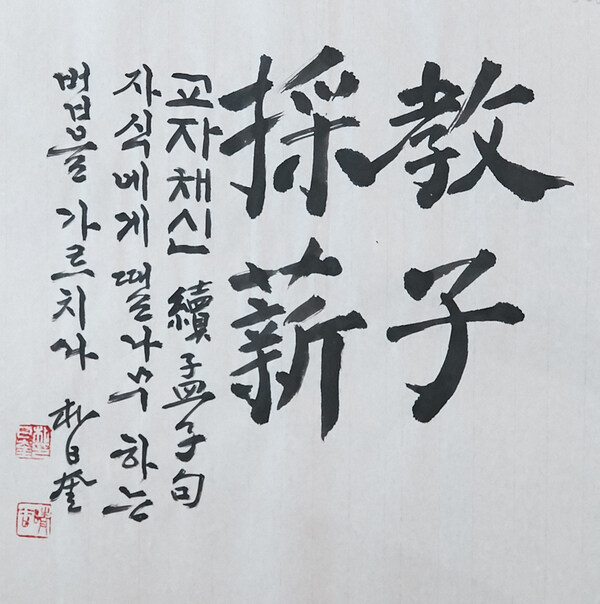 教子
採薪
교자채신 續孟子句
자식에게 땔나무 하는
법을 가르치라 朴日奎